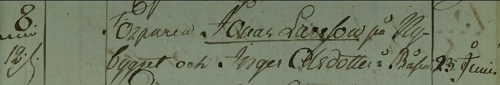 8.
Torparen Jonas Larsson på Ny-
12 bygget och Inger Olsdotter i Båsen 23 år Junii